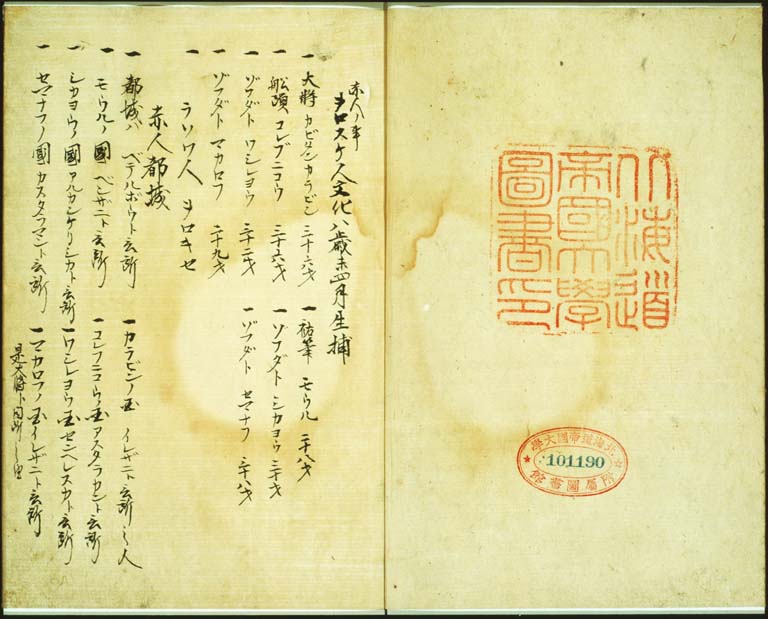 北海道
帝國大學
圖書印
北海道帝國大學
101190
附屬圖書館
赤人ノ事
ヲロスケ人文化八歳未四月生捕
一 大将 カビタンカラビン 三十六才 一 祐筆 モウル 二十八才
一 船頭 コレブニコウ 三十六才 一 ソフダト シカヨウ 三十才
一 ソフダト ワシレヨウ 三十二才 一 ソフダト セマナフ 三十八才
一 ソフダト マカロフ 二十九才
一 ラソワ人 ヲロキセ
赤人都城
一 都城ハ ベテルボウト云所 一 カラビンノ國 イレザニト云所之人
一 モウルノ國 ベンザニト云所 一 コレフニコウノ國アスタラカントト云所
一 シカヨウノ國アルカンゲリシカト云所 一 ワシレヨウ國センベレスカト云所
一 セマナフノ國カスタラマント云所 一 マカロフノ國イレザニト云所
是大将ト同所之由